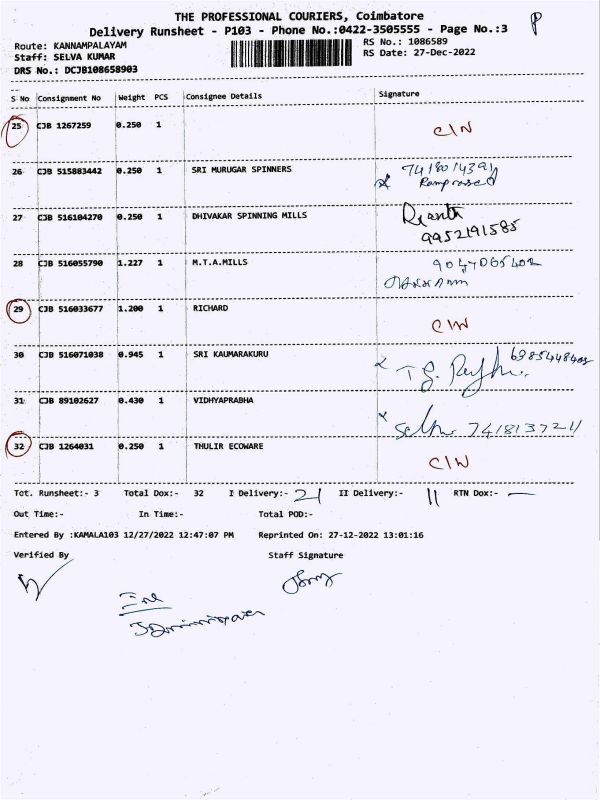 THE PROFESSIONAL COURIERS, Coimbatore
Delivery Runsheet - P103 - Phone No.:0422-3505555 - Page No.:3
P
Route: KANNAMPALAYAM
RS No.: 1086589
Staff: SELVA KUMAR
RS Date: 27-Dec-2022
DRS No.: DCJB108658903
S No Consignment No Weight PCS Consignee Details Signature
25 CJB 1267259 0.250 1 C/N
26 CJB 515883442 0.250 1 SRI MURUGAR SPINNERS
27 CJB 516104270 0.250 1 DHIVAKAR SPINNING MILLS
9952191585
28 CJB 516055790 1.227 1 M.T.A.MILLS
29 CJB 516033677 1.200 1 RICHARD C/N
30 CJB 516071038 0.945 1 SRI KAUMARAKURU
31 CJB 89102627 0.430 1 VIDHYAPRABHA
32 CJB 1264031 0.250 1 THULIR ECOWARE C/N
Tot. Runsheet:- 3 Total Dox:- 32 I Delivery:- 21 II Delivery:- 11 RTN Dox:- —
Out Time:- In Time:- Total POD:-
Entered By :KAMALA103 12/27/2022 12:47:07 PM Reprinted On: 27-12-2022 13:01:16
Verified By Staff Signature